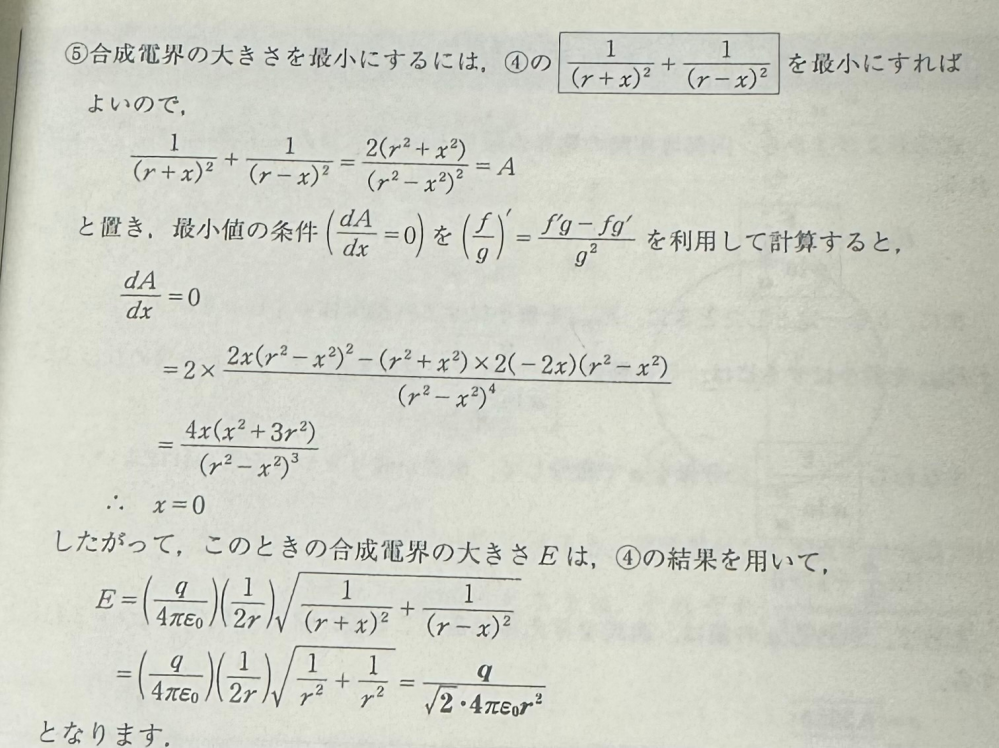 ⑤合成電界の大きさを最小にするには，④の 1/(r+x)² + 1/(r−x)² を最小にすれば
よいので，
1/(r+x)² + 1/(r−x)² = 2(r²+x²)/(r²−x²)² = A
と置き，最小値の条件(dA/dx=0)を(f/g)′=(f′g−fg′)/g² を利用して計算すると，
dA/dx=0
=2×(2x(r²−x²)²−(r²+x²)×2(−2x)(r²−x²))/(r²−x²)⁴
=4x(x²+3r²)/(r²−x²)³
∴ x=0
したがって，このときの合成電界の大きさEは，④の結果を用いて，
E=(q/4πε₀)(1/2r)√(1/(r+x)²+1/(r−x)²)
=(q/4πε₀)(1/2r)√(1/r²+1/r²)=q/(√2・4πε₀r²)
となります．